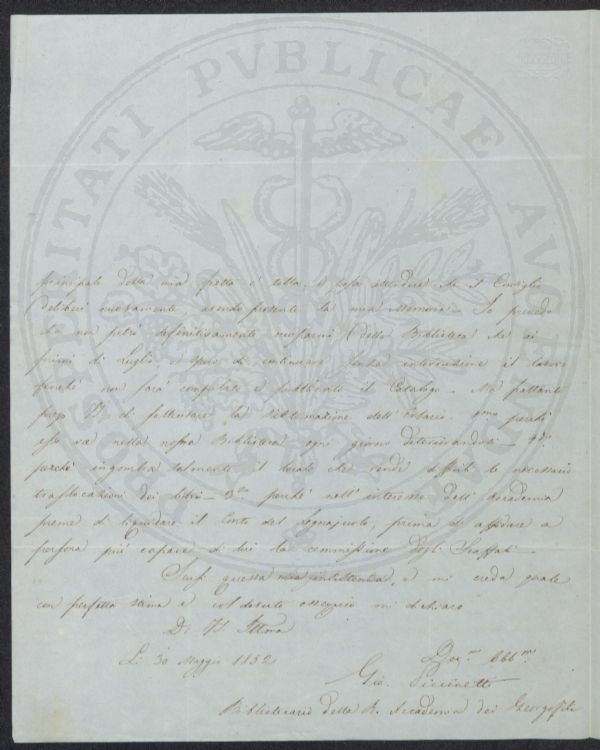 principale della mia fretta è tolta, e posso attendere che il Consiglio
deliberi nuovamente avendo presente la mia Memoria. Io prevedo
che non potrò definitivamente occuparmi della Biblioteca che ai
primi di Luglio, e spero di continuare senza interruzione il lavoro
finchè non sarà completato e pubblicato il Catalogo. Ma frattanto
prego V. di sollecitare la sistemazione dell'Erbario. 1mo perchè
esso va nella nostra Biblioteca ogni giorno deteriorandosi - 2do
perchè ingombra talmente il locale che rende difficili le necessarie
traslocazioni dei libri - 3zo perchè nell'interesse dell'Accademia
preme di liquidare il Conto del Legnajuolo, prima di affidare a
persona più capace di lui la commissione degli Scaffali.
Scusi questa mia insistenza, e mi creda quale
con perfetta stima e col dovuto ossequio mi dichiaro
Di VS Illma
Li 30 Maggio 1852
Devmo Obbmo
Gio.
Bibliotecario della R. Accademia dei Georgofili
PROSPERITATI PVBLICAE AVGENDAE